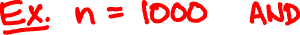 Ex. n = 1000 AND